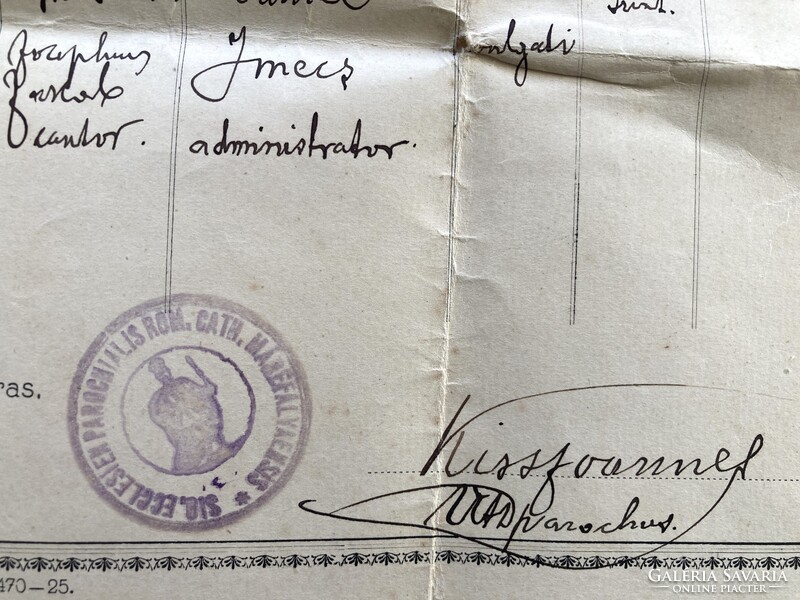 Josephus Imecs vulgati
cantor. administrator.
SIG. ECCLESIEN PAROCHIALIS ROM. CATH. MARÉFALVAENSIS
ras.
Kiss Joannes
parochus.
470-25.
GALÉRIA SAVARIA
ONLINE PIACTÉR